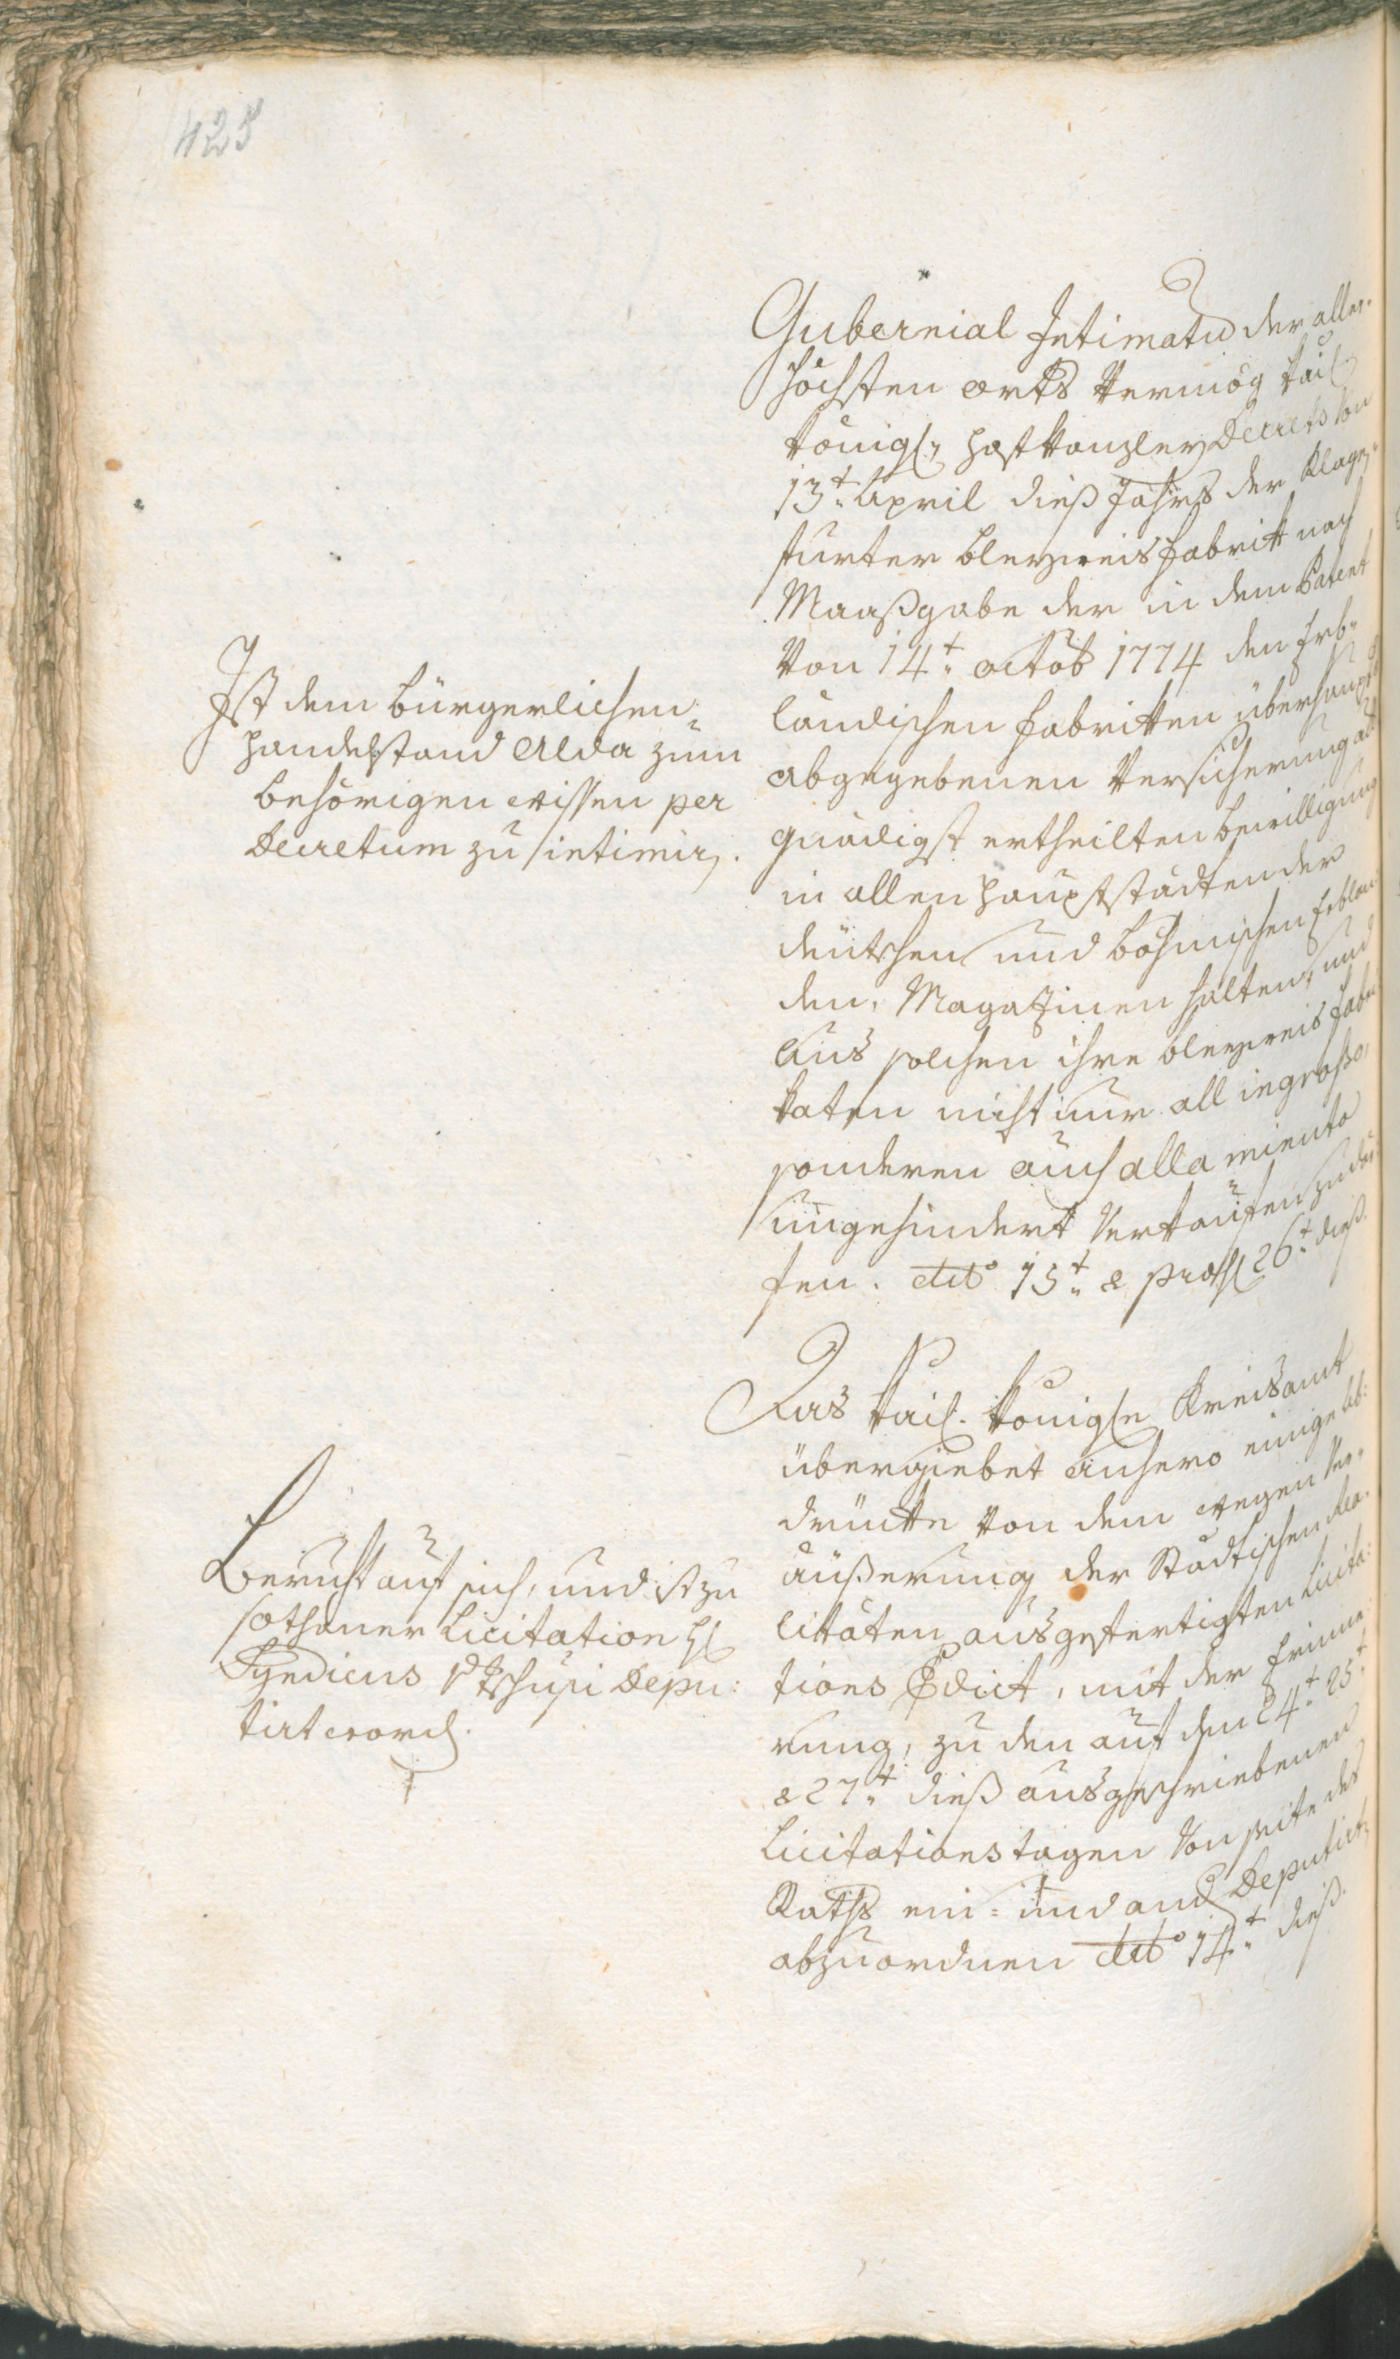 425
Gubernial Intimatu der aller¬
höchsten orts Vermög Kais
Königl. HofKanzley Decrets Von
13t. April dieß Jahrs der Klagen¬
furter bleyweis fabrik nach
Maaßgabe der in dem Patent
Von 14t. octob 1774 den Erb¬
ländischen fabriken überhaupt
abgegebenen Versicherung all
gnädigst ertheilten bewilligung
in allen Hauptstädten der
deütschen und böhmischen Erblan
den, Magazinen halten, und
Aus solchen ihre bleyweis fabri
katen nicht nur all ingrosso,
sonderen auch alla minuto
ungehindert Verkaufen zu dör
fen. dto 15t. & praes 26t. dieß.
Ist dem bürgerlichen
Handelstand Alda zum
behörigen wissen per
Decretum zu intimir.
Das Kais. Königle Kreisamt
übergiebet anhero einige Ab:
drücke von dem wegen Ver¬
äüßerung der Städtischen Rea¬
litäten ausgefertigten Licita:
tions Edict, mit der Erinne
rung, zu den auf den 24t. 25t.
& 27t. dieß ausgeschriebenen
Licitationstagen Von seite des
Raths ein= und and Deputirt
abzuordnen dto 14t. dieß.
Beruht auf sich, und ist zu
sothaner Licitation H
Syndicus Depu:
tirt word.